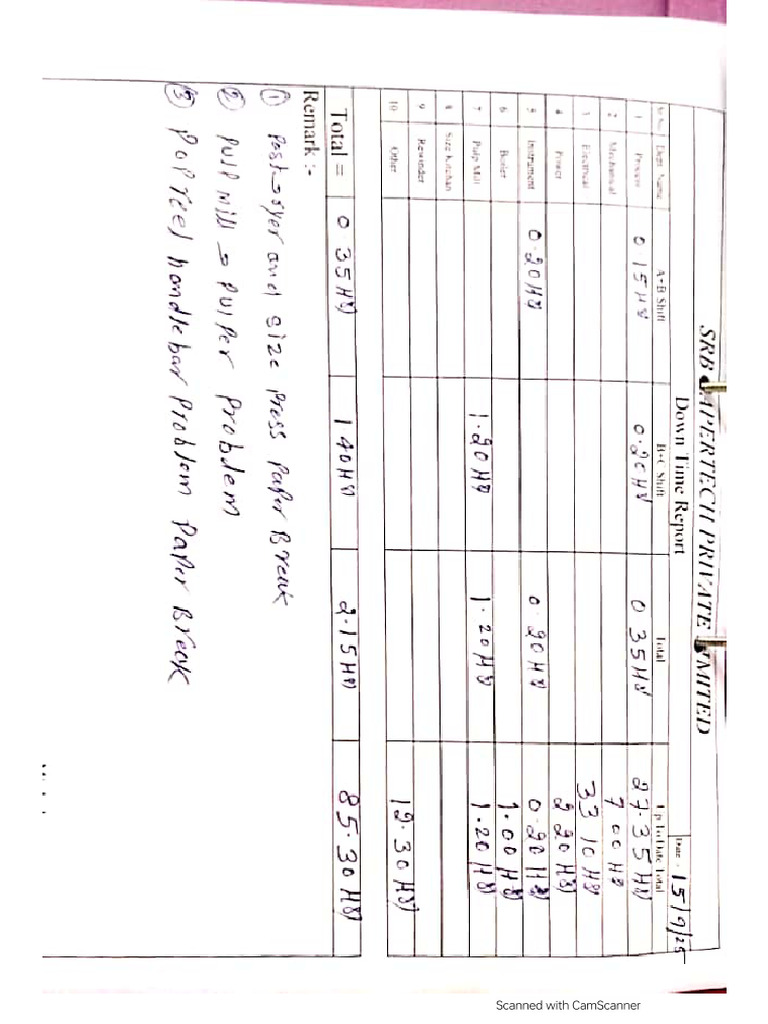 SRB PAPERTECH PRIVATE LIMITED
Down Time Report Date :- 15/9/25
Sr.No. Dept. Name A+B Shift B+C Shift Total Up to Date Total
1 Process 0.15H8 0.20H8 0.35H8 27.35H8
2 Mechanical 7.00H8
3 Electrical 33.10H8
4 Power 2.20H8
5 Instrument 0.20H8 0.20H8 0.20H8
6 Boiler 1.00H8
7 Pulp Mill 1.20H8 1.20H8 1.20H8
8 Size Kitchan
9 Rewinder
10 Other 12.30H8
Total = 0.35H8 1.40H8 2.15H8 85.30H8
Remark :-
① Post dyer and size press Paper Break
② Pulp mill → Pulper Problem
③ Pop reel handlebar Problem Paper Break
Scanned with CamScanner